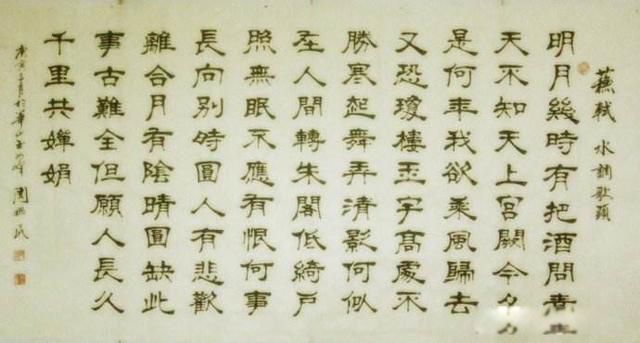 蘇軾 水調歌頭
明月幾時有把酒問青
天不知天上宮闕今夕
是何年我欲乘風歸去
又恐瓊樓玉宇高處不
勝寒起舞弄清影何似
在人間轉朱閣低綺戶
照無眠不應有恨何事
長向別時圓人有悲歡
離合月有陰晴圓缺此
事古難全但願人長久
千里共嬋娟